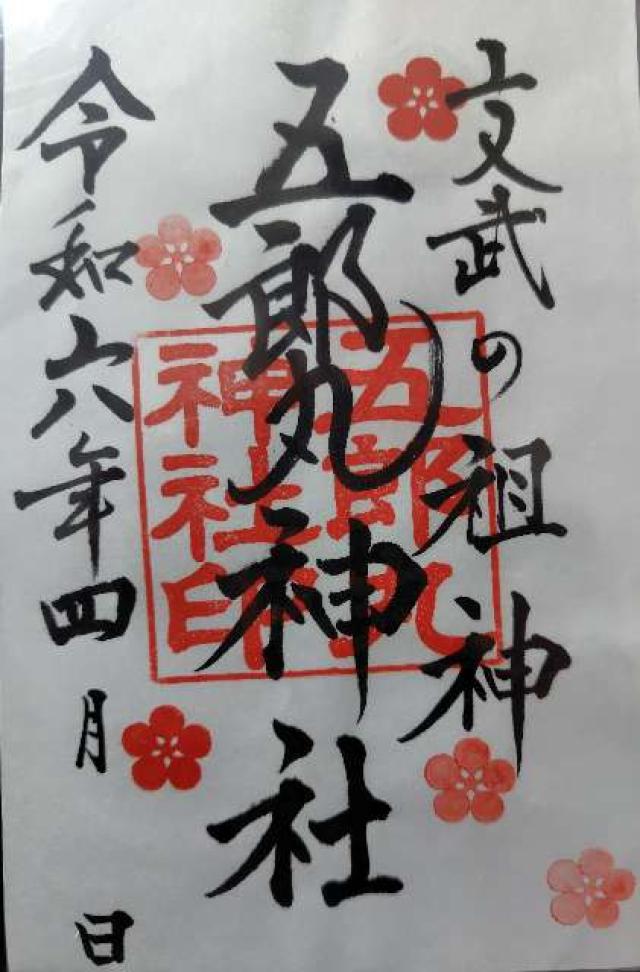 文武の祖神
五郎丸神社
五郎丸
神社印
令和六年四月 日